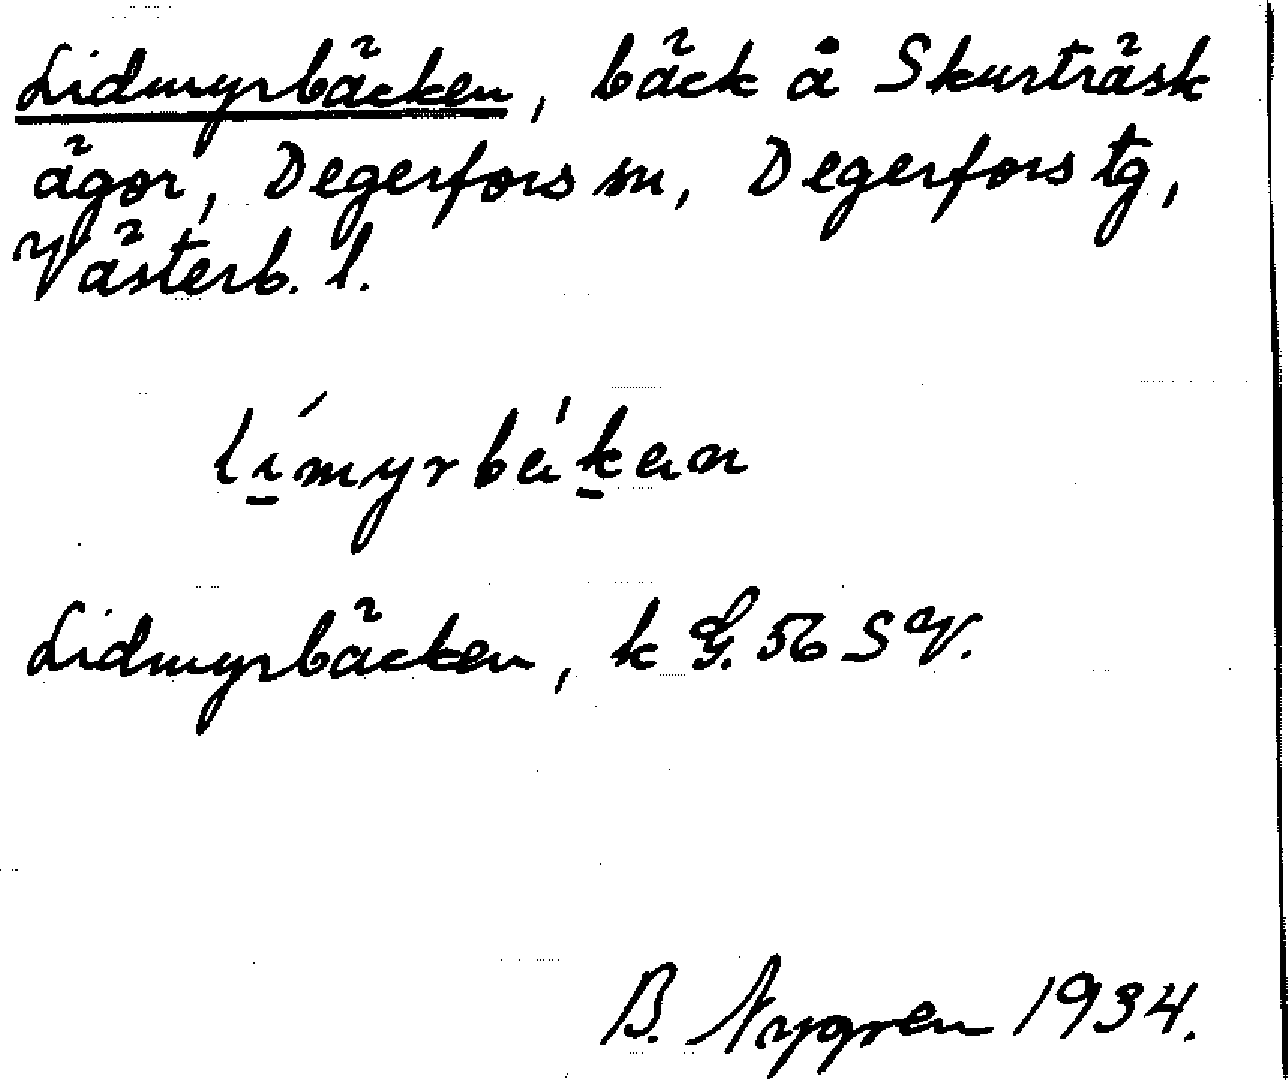 Lidmyrbäcken, bäck å Skurträsk
ägor, Degerfors sn, Degerfors tg,
Västerb. l.
Lidmyrbäcken, k G. 56 SV.
B. Nygren 1934.